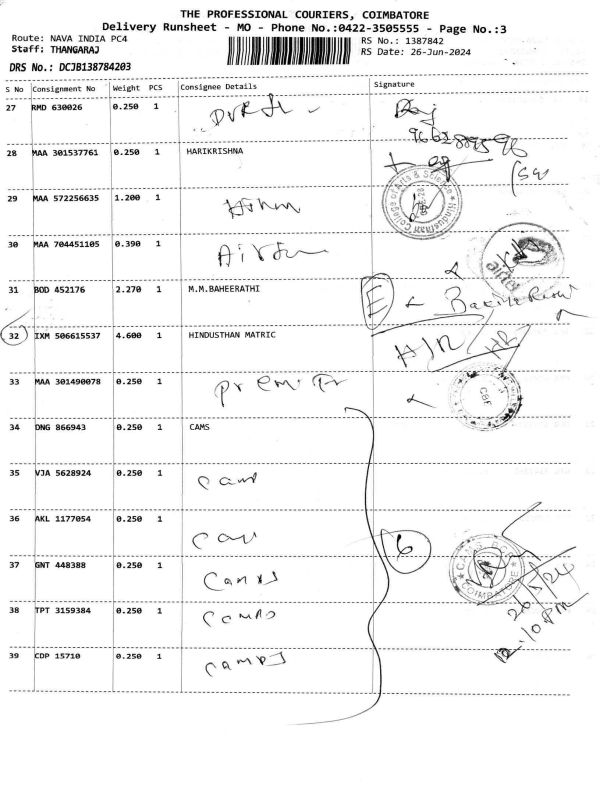 THE PROFESSIONAL COURIERS, COIMBATORE
Delivery Runsheet - MO - Phone No.:0422-3505555 - Page No.:3
Route: NAVA INDIA PC4
RS No.: 1387842
Staff: THANGARAJ
RS Date: 26-Jun-2024
DRS No.: DCJB138784203
S No Consignment No Weight PCS Consignee Details Signature
27 RMD 630026 0.250 1
28 MAA 301537761 0.250 1 HARIKRISHNA
29 MAA 572256635 1.200 1
30 MAA 704451105 0.390 1
31 BOD 452176 2.270 1 M.M.BAHEERATHI
E
32 IXM 506615537 4.600 1 HINDUSTHAN MATRIC
33 MAA 301490078 0.250 1
34 DNG 866943 0.250 1 CAMS
35 VJA 5628924 0.250 1
36 AKL 1177054 0.250 1
6
37 GNT 448388 0.250 1
COIMBATORE
38 TPT 3159384 0.250 1
12.10 PM
39 CDP 15710 0.250 1